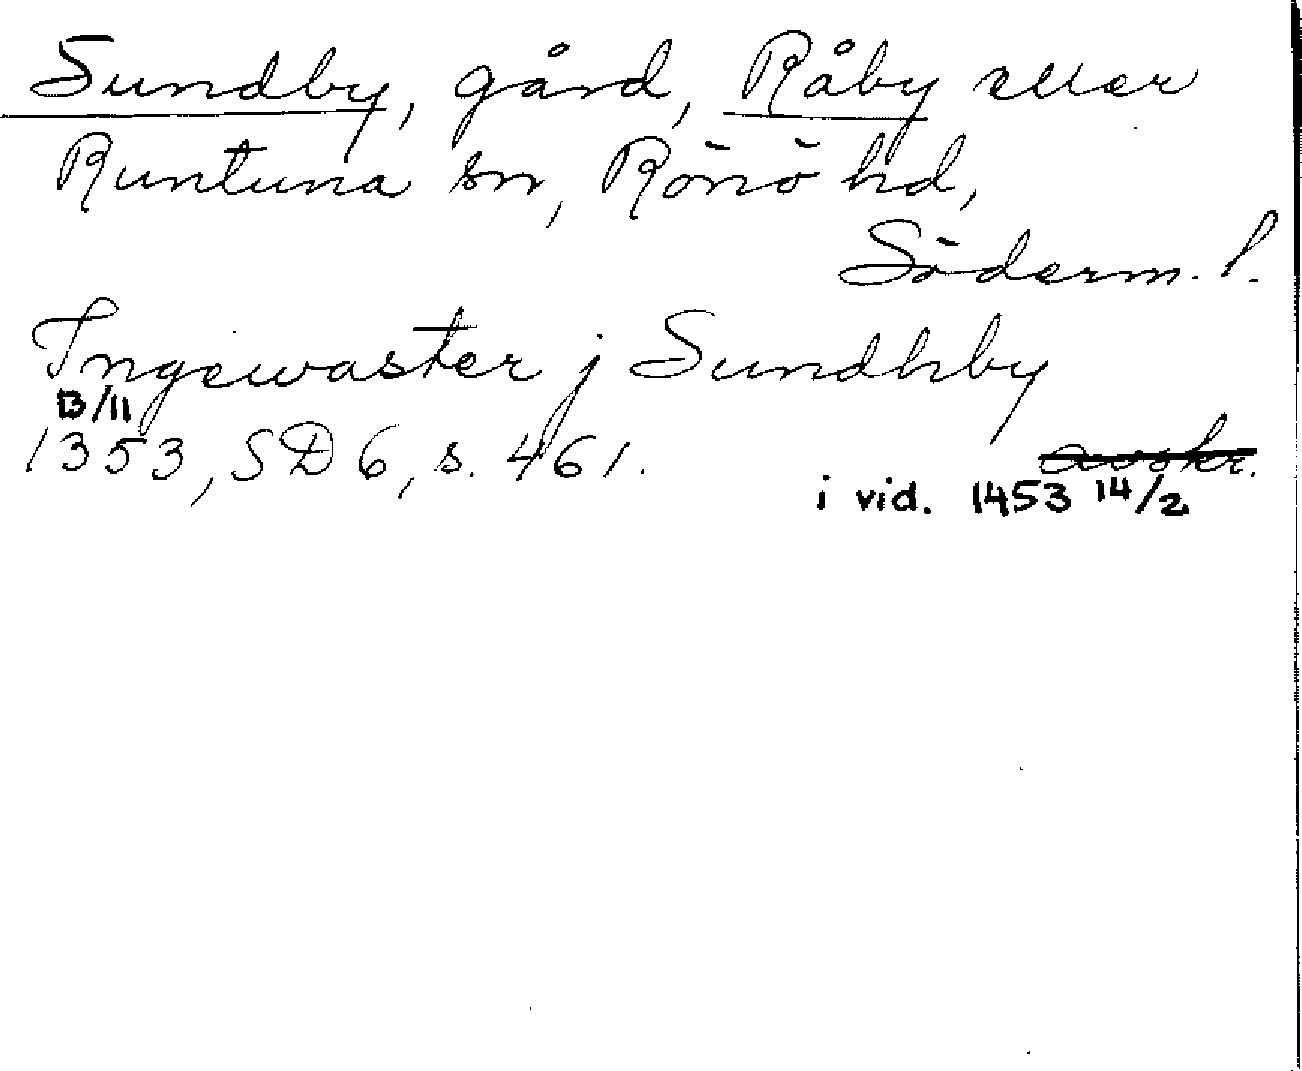 Sundby, gård, Råby eller
Runtuna sn, Rönö hd,
Söderm. l.
Ingewaster j Sundhby
13/11
1353, SD 6, s. 461.
avskr.
i vid. 1453 14/2